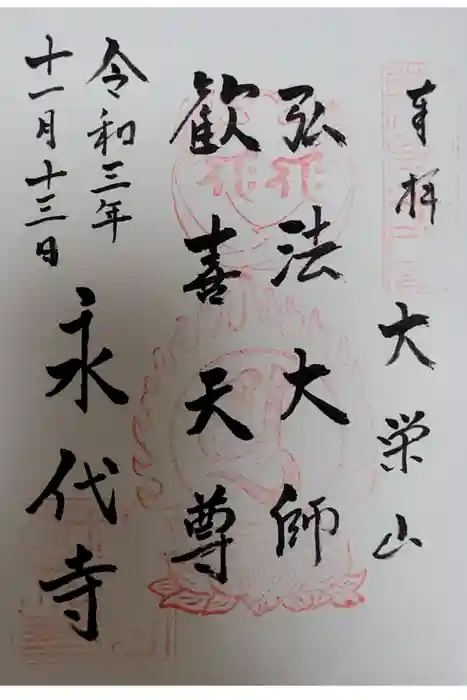 奉拝
大栄山
弘法大師
歓喜天尊
令和三年
十一月十三日
永代寺